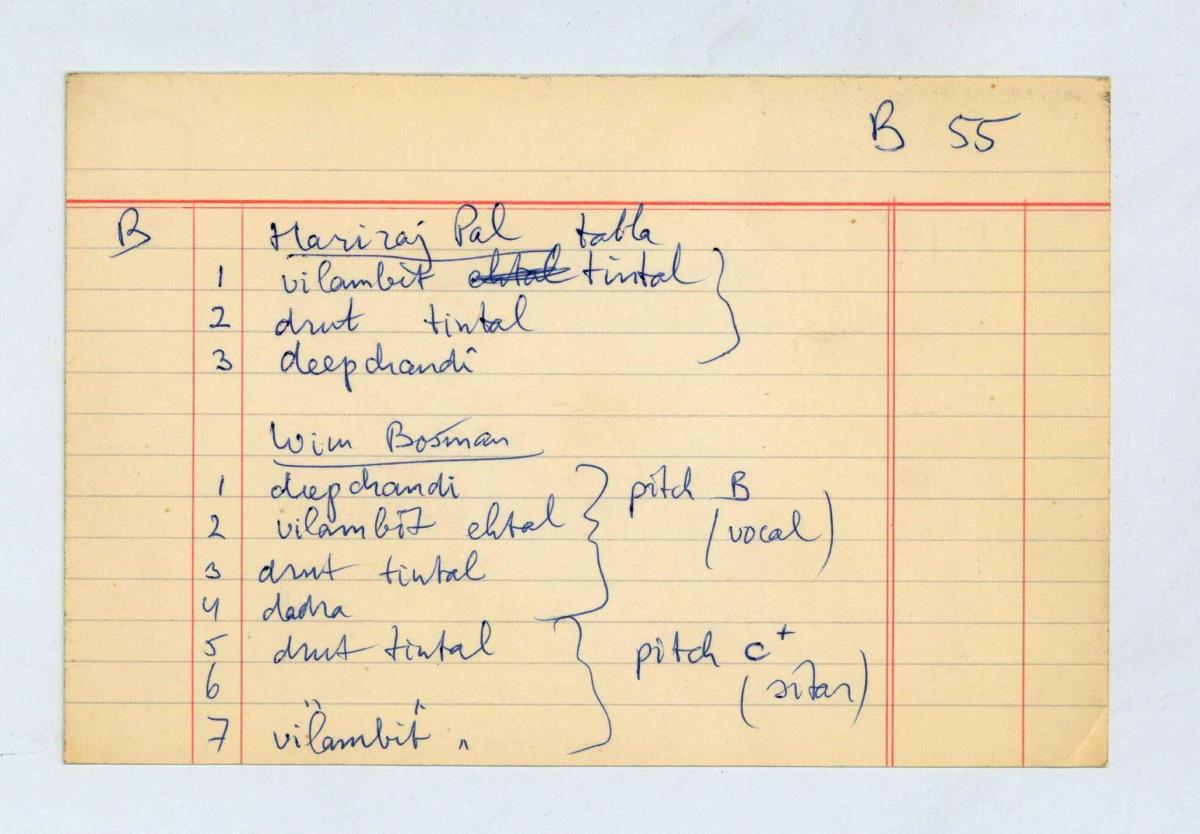 B 55
B Hariraj Pal tabla
1 vilambit ektal tintal
2 drut tintal
3 deepchandi
Wim Bosman
1 deepchandi pitch B
2 vilambit ektal (vocal)
3 drut tintal
4 dadra
5 drut tintal pitch c+
6 " " (sitar)
7 vilambit "